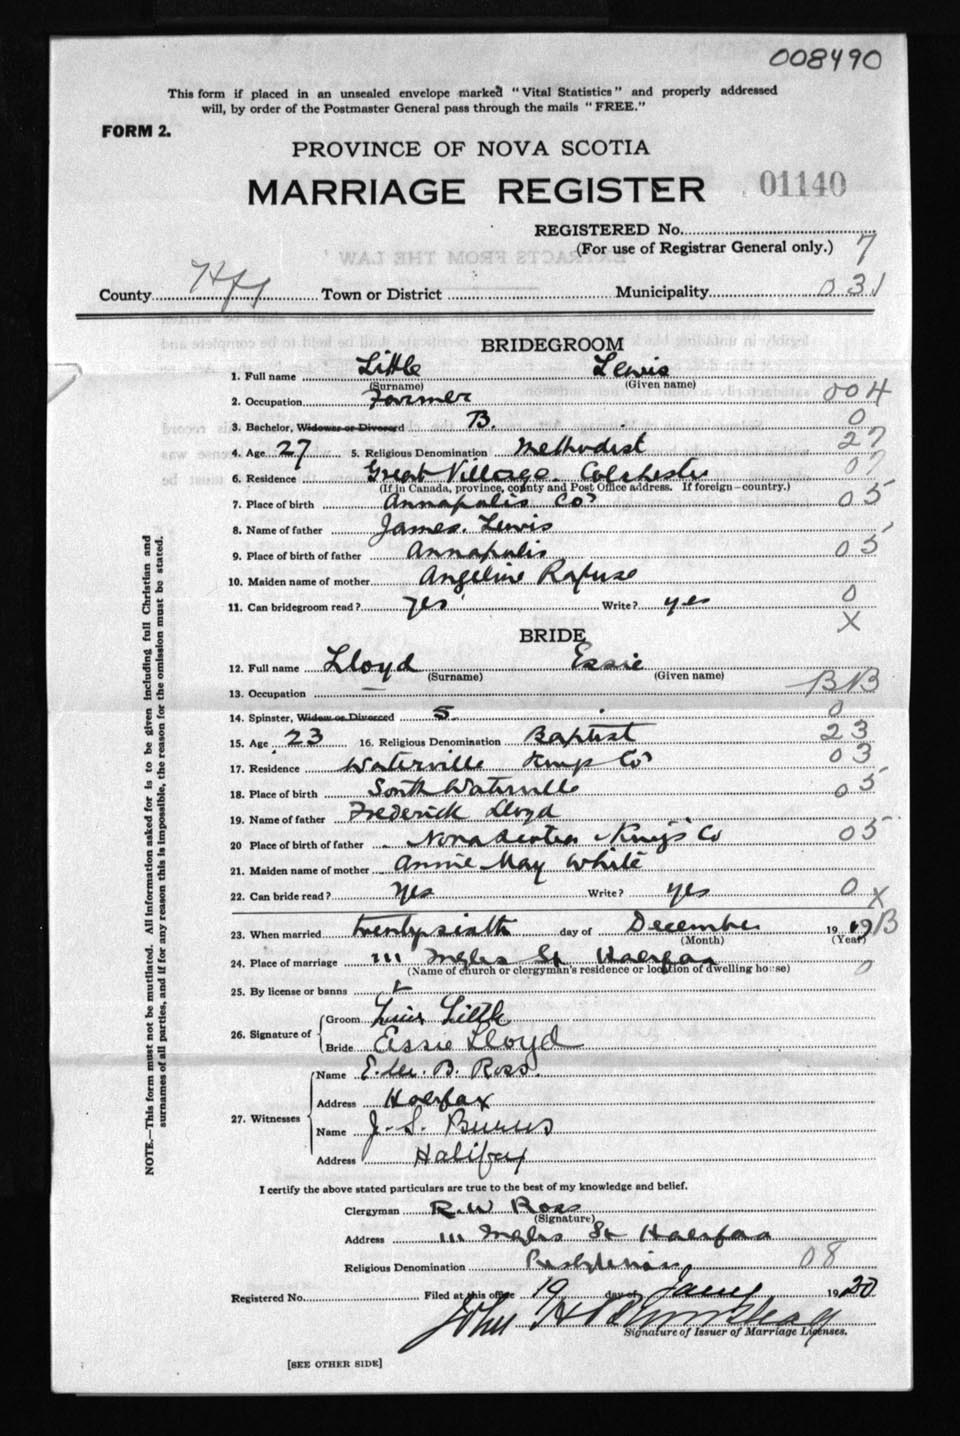 008490
This form if placed in an unsealed envelope marked "Vital Statistics" and properly addressed
will, by order of the Postmaster General pass through the mails "FREE."
FORM 2.
PROVINCE OF NOVA SCOTIA
MARRIAGE REGISTER 01140
REGISTERED No.
(For use of Registrar General only.) 7
County Hfx Town or District Municipality 031
BRIDEGROOM
1. Full name Little Lewis
(Surname) (Given name)
2. Occupation Farmer 004
3. Bachelor, Widower or Divorced B. 0
4. Age 27 5. Religious Denomination Methodist 27
6. Residence Great Village Colchester 07
(If in Canada, province, county and Post Office address. If foreign-country.)
7. Place of birth Annapolis Co 05
8. Name of father James Lewis
9. Place of birth of father Annapolis 05
10. Maiden name of mother Angeline Rafuse
11. Can bridegroom read? yes Write? yes 0
X
BRIDE
12. Full name Lloyd Essie
(Surname) (Given name)
13. Occupation BB
14. Spinster, Widow or Divorced S. 0
15. Age 23 16. Religious Denomination Baptist 23
17. Residence Waterville Kings Co 03
18. Place of birth South Waterville 05
19. Name of father Frederick Lloyd
20 Place of birth of father Nova Scotia King's Co 05
21. Maiden name of mother Annie May White
22. Can bride read? yes Write? yes 0 X
23. When married twenty sixth day of December 19 19 B
(Month) (Year)
24. Place of marriage 111 Inglis St Halifax 0
(Name of church or clergyman's residence or location of dwelling house)
25. By license or banns L
26. Signature of Groom Little
Bride Essie Lloyd
27. Witnesses Name B. Ross
Address Halifax
Name J. S. Burns
Address Halifax
I certify the above stated particulars are true to the best of my knowledge and belief.
Clergyman R. W Ross
(Signature)
Address 111 Inglis St Halifax
Religious Denomination Presbyterian 08
Registered No. Filed at this office 19 day of Jany 1920
John H
Signature of Issuer of Marriage Licenses.
[SEE OTHER SIDE]
NOTE.—This form must not be mutilated. All information asked for is to be given including full Christian and
surnames of all parties, and if for any reason this is impossible, the reason for the omission must be stated.